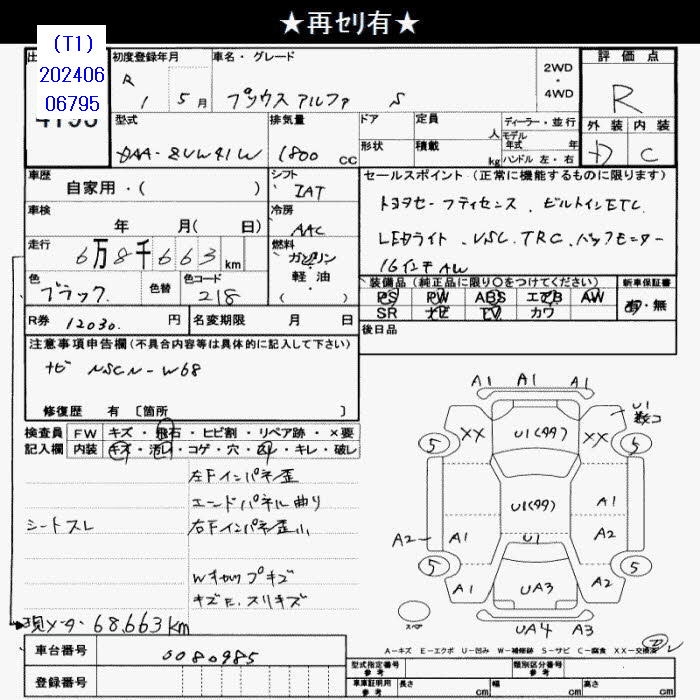 ★再セリ有★
(T1)
202406
06795
初度登録年月
車名・グレード
R 1 5月
プリウス アルファ S
2WD
・
4WD
評価点
R
外装 内装
D C
型式
DAA-ZVW41W
排気量
1800 CC
ドア
定員
人
形状
積載
kg
ディーラー・並行
モデル年式 年
ハンドル 左・右
車歴
自家用・( )
シフト
IAT
セールスポイント (正常に機能するものに限ります)
トヨタセーフティセンス、ビルトインETC、
LEDライト、VSC、TRC、バックモニター
16インチAW
車検
年 月( 日)
冷房
AAC
走行
6万8千663km
燃料
ガソリン
軽・油
( )
色
ブラック
色替
色コード
218
装備品(純正品に限り○をつけてください)
新車保証書
PS PW ABS エアB AW
有・無
SR ナビ TV カワ
R券 12030 円
名変期限 月 日
後日品
注意事項申告欄(不具合内容等は具体的に記入して下さい)
ナビ NSCN-W68
修復歴 有 〔箇所 〕
検査員
記入欄
FW キズ・飛石・ヒビ割・リペア跡・×要
内装 キズ・汚レ・コゲ・穴・凶レ・キレ・破レ
左Fインパネ歪
エンドパネル曲り
シートスレ
右Fインパネ歪小
Wキャップキズ
キズE、スリキズ
現メーター 68,663km
A1 A1 A1
U1
XX U1(99) XX
5 5
U1(99)
A1
A2 A1 U1 A2
5 5
A1 UA3 A2
スペア
UA4 A3
A-キズ E-エクボ U-凹み W-補修跡 S-サビ C-腐食 XX-交換済
車台番号
0080985
登録番号
型式指定番号
参考
類別区分番号
参考
車庫証明用
参考
長さ cm
幅 cm
高さ cm